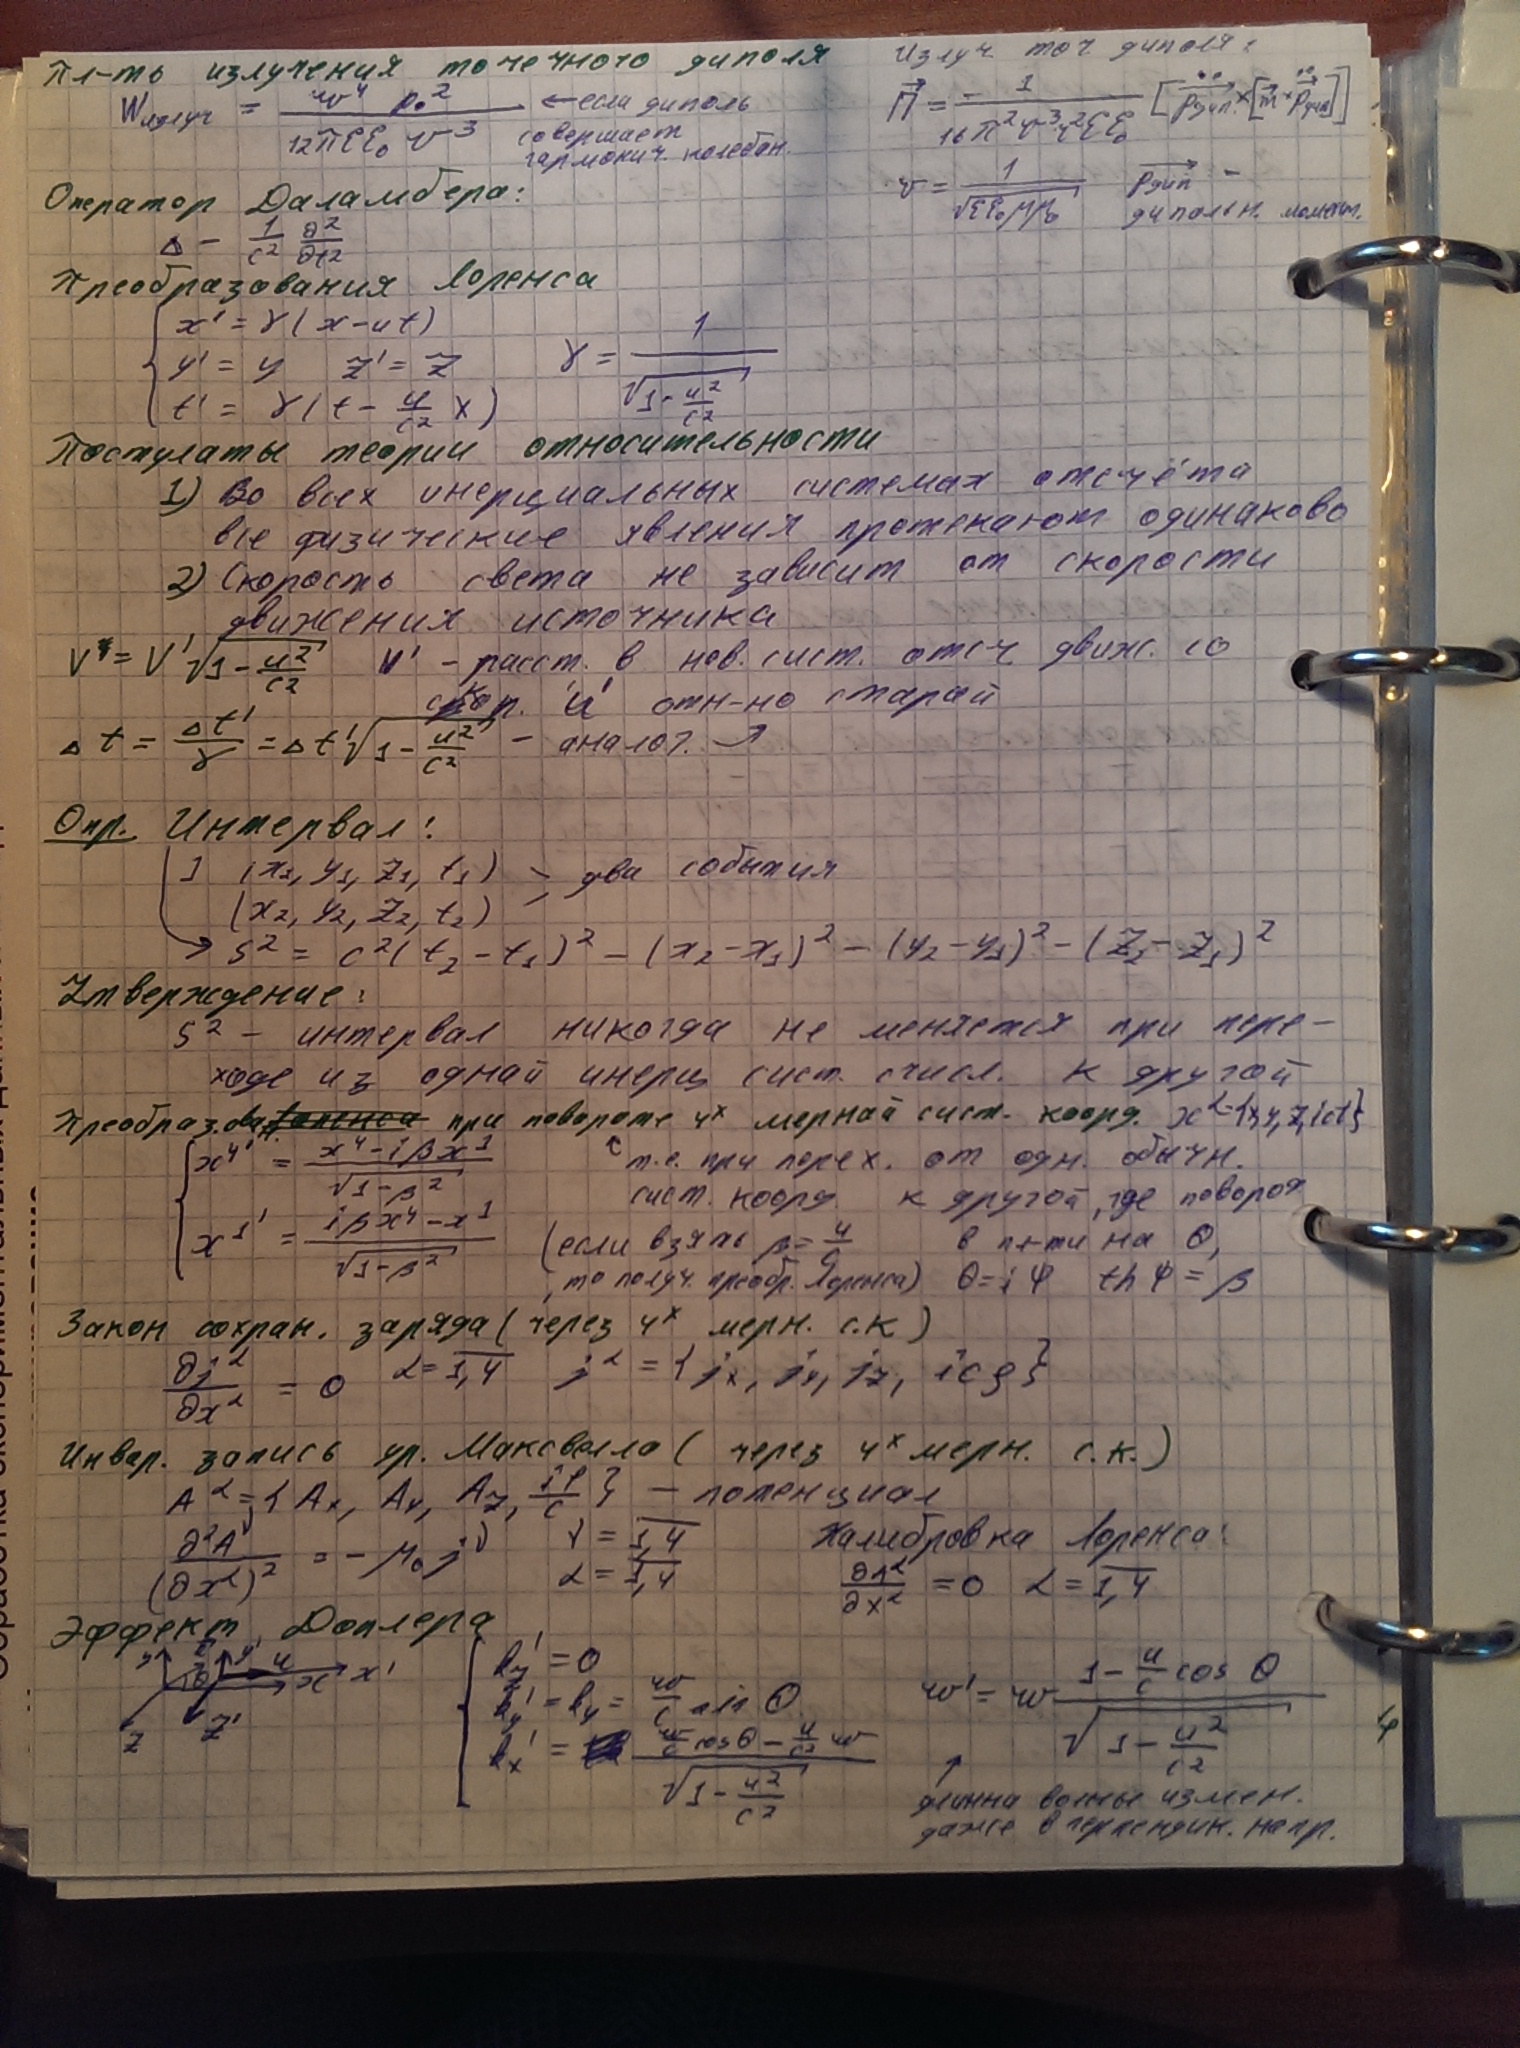 Пл-ть излучения точечного диполя
Wизлуч = w⁴ p₀² / 12πεε₀ v³ ← если диполь
совершает
гармонич. колебан.
Излуч точ диполя:
П = - 1 / 16π²v³r²εε₀ [p̈дип. × [m × p̈дип]]
v = 1 / √εε₀μμ₀ pдип -
дипольн. момент.
Оператор Даламбера:
Δ - 1/c² ∂²/∂t²
Преобразования Лоренса
x' = γ(x - ut)
y' = y z' = z
t' = γ(t - u/c² x)
γ = 1 / √1 - u²/c²
Постулаты теории относительности
1) Во всех инерциальных системах отсчёта
все физические явления протекают одинаково
2) Скорость света не зависит от скорости
движения источника
V = V' √1 - u²/c² V' - расст. в нов. сист. отсч движ. со
скор. u отн-но старай
Δt = Δt'/γ = Δt' √1 - u²/c² - аналог. ↗
Опр. Интервал:
] (x₁, y₁, z₁, t₁) > два события
(x₂, y₂, z₂, t₂)
→ S² = c²(t₂ - t₁)² - (x₂ - x₁)² - (y₂ - y₁)² - (z₂ - z₁)²
Утверждение:
S² - интервал никогда не меняется при пере-
ходе из однай инерц сист. счисл. к другой
Преобраз. при повороте 4х мернай сист. коорд. xᵅ={x,y,z,ict}
x⁴' = x⁴ - iβx¹ / √1 - β²
x¹' = iβx⁴ - x¹ / √1 - β²
т.е. при перех. от одн. обычн.
сист. коорд. к другой, где поворот
(если взять β = u/c в пл-ти на θ,
то получ. преобр. Лоренса) θ = iφ th φ = β
Закон сохран. заряда (через 4х мерн. с.к)
∂jᵅ/∂xᵅ = 0 α = 1,4 jᵅ = {jx, jy, jz, icρ}
Инвар. запись ур. Максвелла (через 4х мерн. с.к.)
Aᵅ = {Ax, Ay, Az, iφ/c} - потенциал
∂²Aᵞ/(∂xᵅ)² = - μ₀ jᵞ γ = 1,4
α = 1,4
Калибровка Лоренса:
∂Aᵅ/∂xᵅ = 0 α = 1,4
Эффект Доплера
y z y' u x x' θ
z z'
kz' = 0
ky' = ky = w/c sin θ
kx' = w/c cosθ - u/c² w / √1 - u²/c²
w' = w 1 - u/c cos θ / √1 - u²/c²
длинна волны измен.
даже в перпендик. напр.